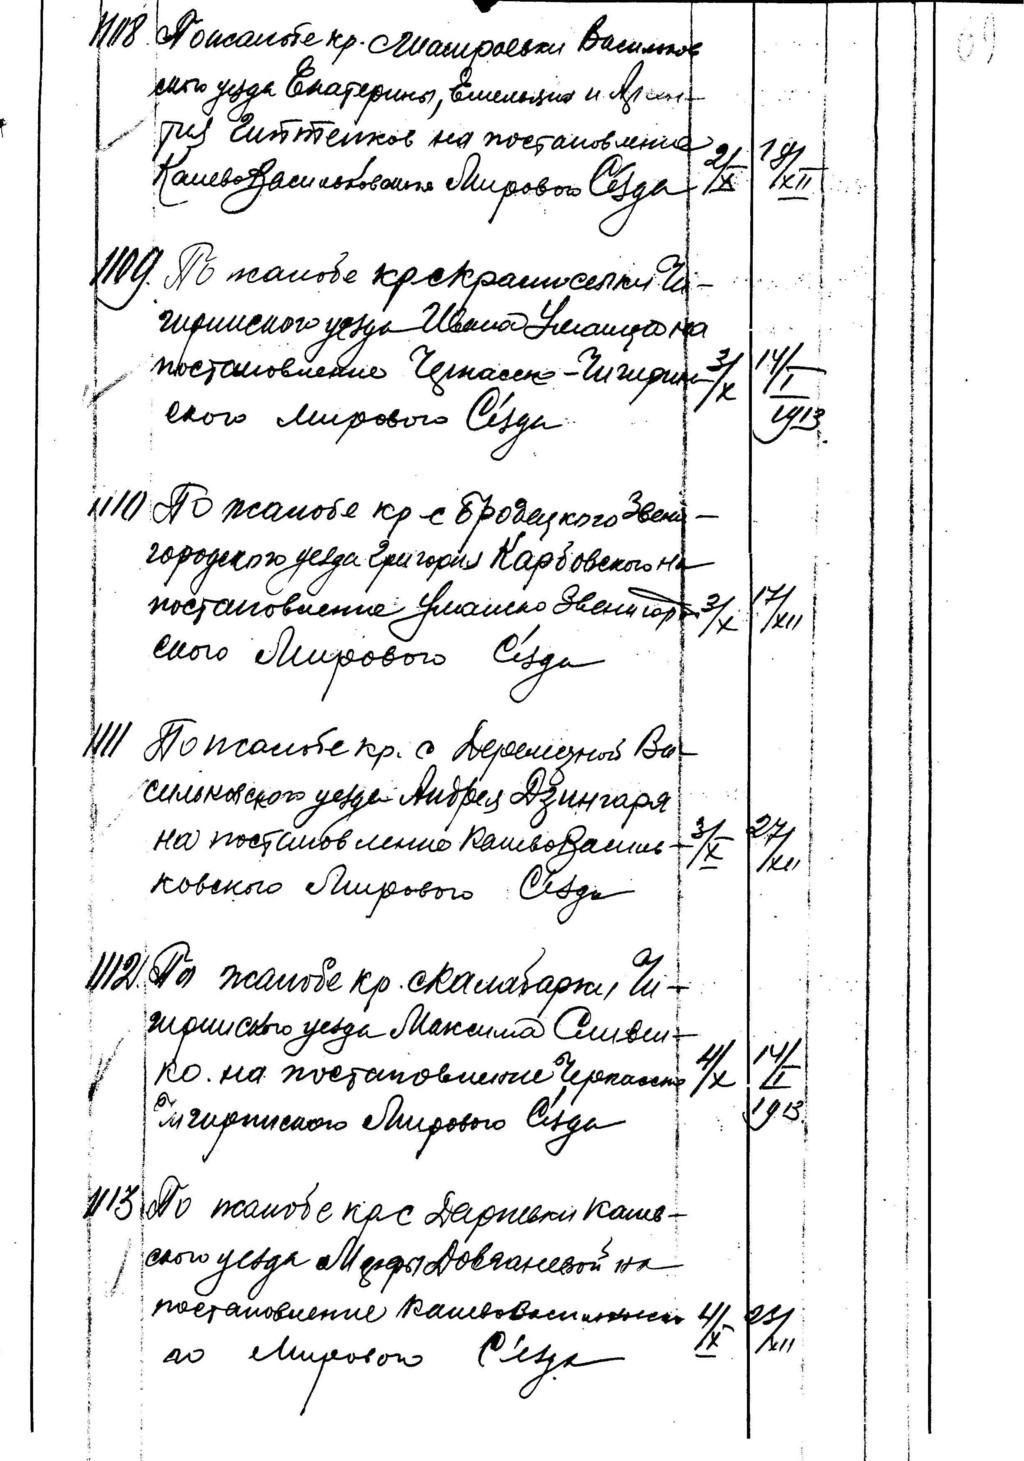 69
1108 По жалобе кр. с Васильков
ского уезда Екатерины, Емельяна и
на постановление
КаневоВасильковского Мирового Сезда 2/X 19/XII
1109. По жалобе кр с Красноселки Чи-
гиринского уезда Ивана Уманца на
постановление Черкасско-Чигирин- 3/X 14/I
ского Мирового Сезда 1913.
1110 По жалобе кр с Бродецкого Звени-
городского уезда Григория Карбовского на
постановление Уманско Звенигород 3/X 17/XII
ского Мирового Сезда
1111 По жалобе кр. с Деремезной Ва-
сильковского уезда Андрея Дзингаря
на постановление КаневоВасиль- 3/X 27/XII
ковского Мирового Сезда
1112. По жалобе кр. с Калабарки, Чи-
гиринского уезда Максима Сливен-
ко. на постановление Черкасско 4/X 14/I
Чигиринского Мирового Сезда 1913.
1113 По жалобе кр с Канев-
ского уезда на
постановление КаневоВасильковско 4/X 23/XII
го Мирового Сезда